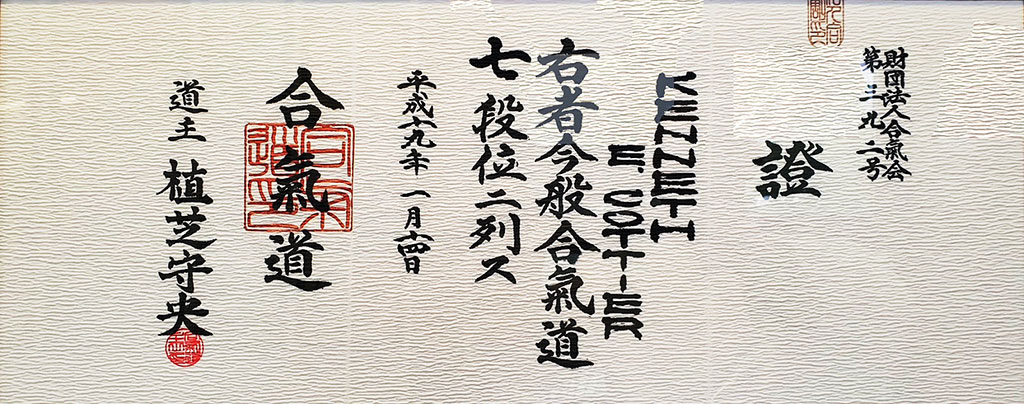 財団法人合氣会
第三九二号
證
KENNETH
E. COTTIER
右者今般合氣道
七段位ニ列ス
平成十九年一月十四日
合氣道
道主 植芝守央